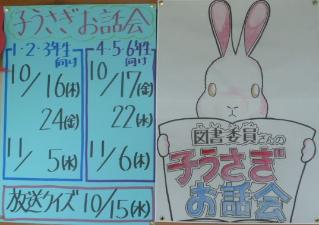 子うさぎお話会
1・2・3年生向け
10/16(木)
24(金)
11/5(水)
4・5・6年生向け
10/17(金)
22(水)
11/6(木)
放送クイズ 10/15(水)
図書委員さんの
子うさぎ
お話会